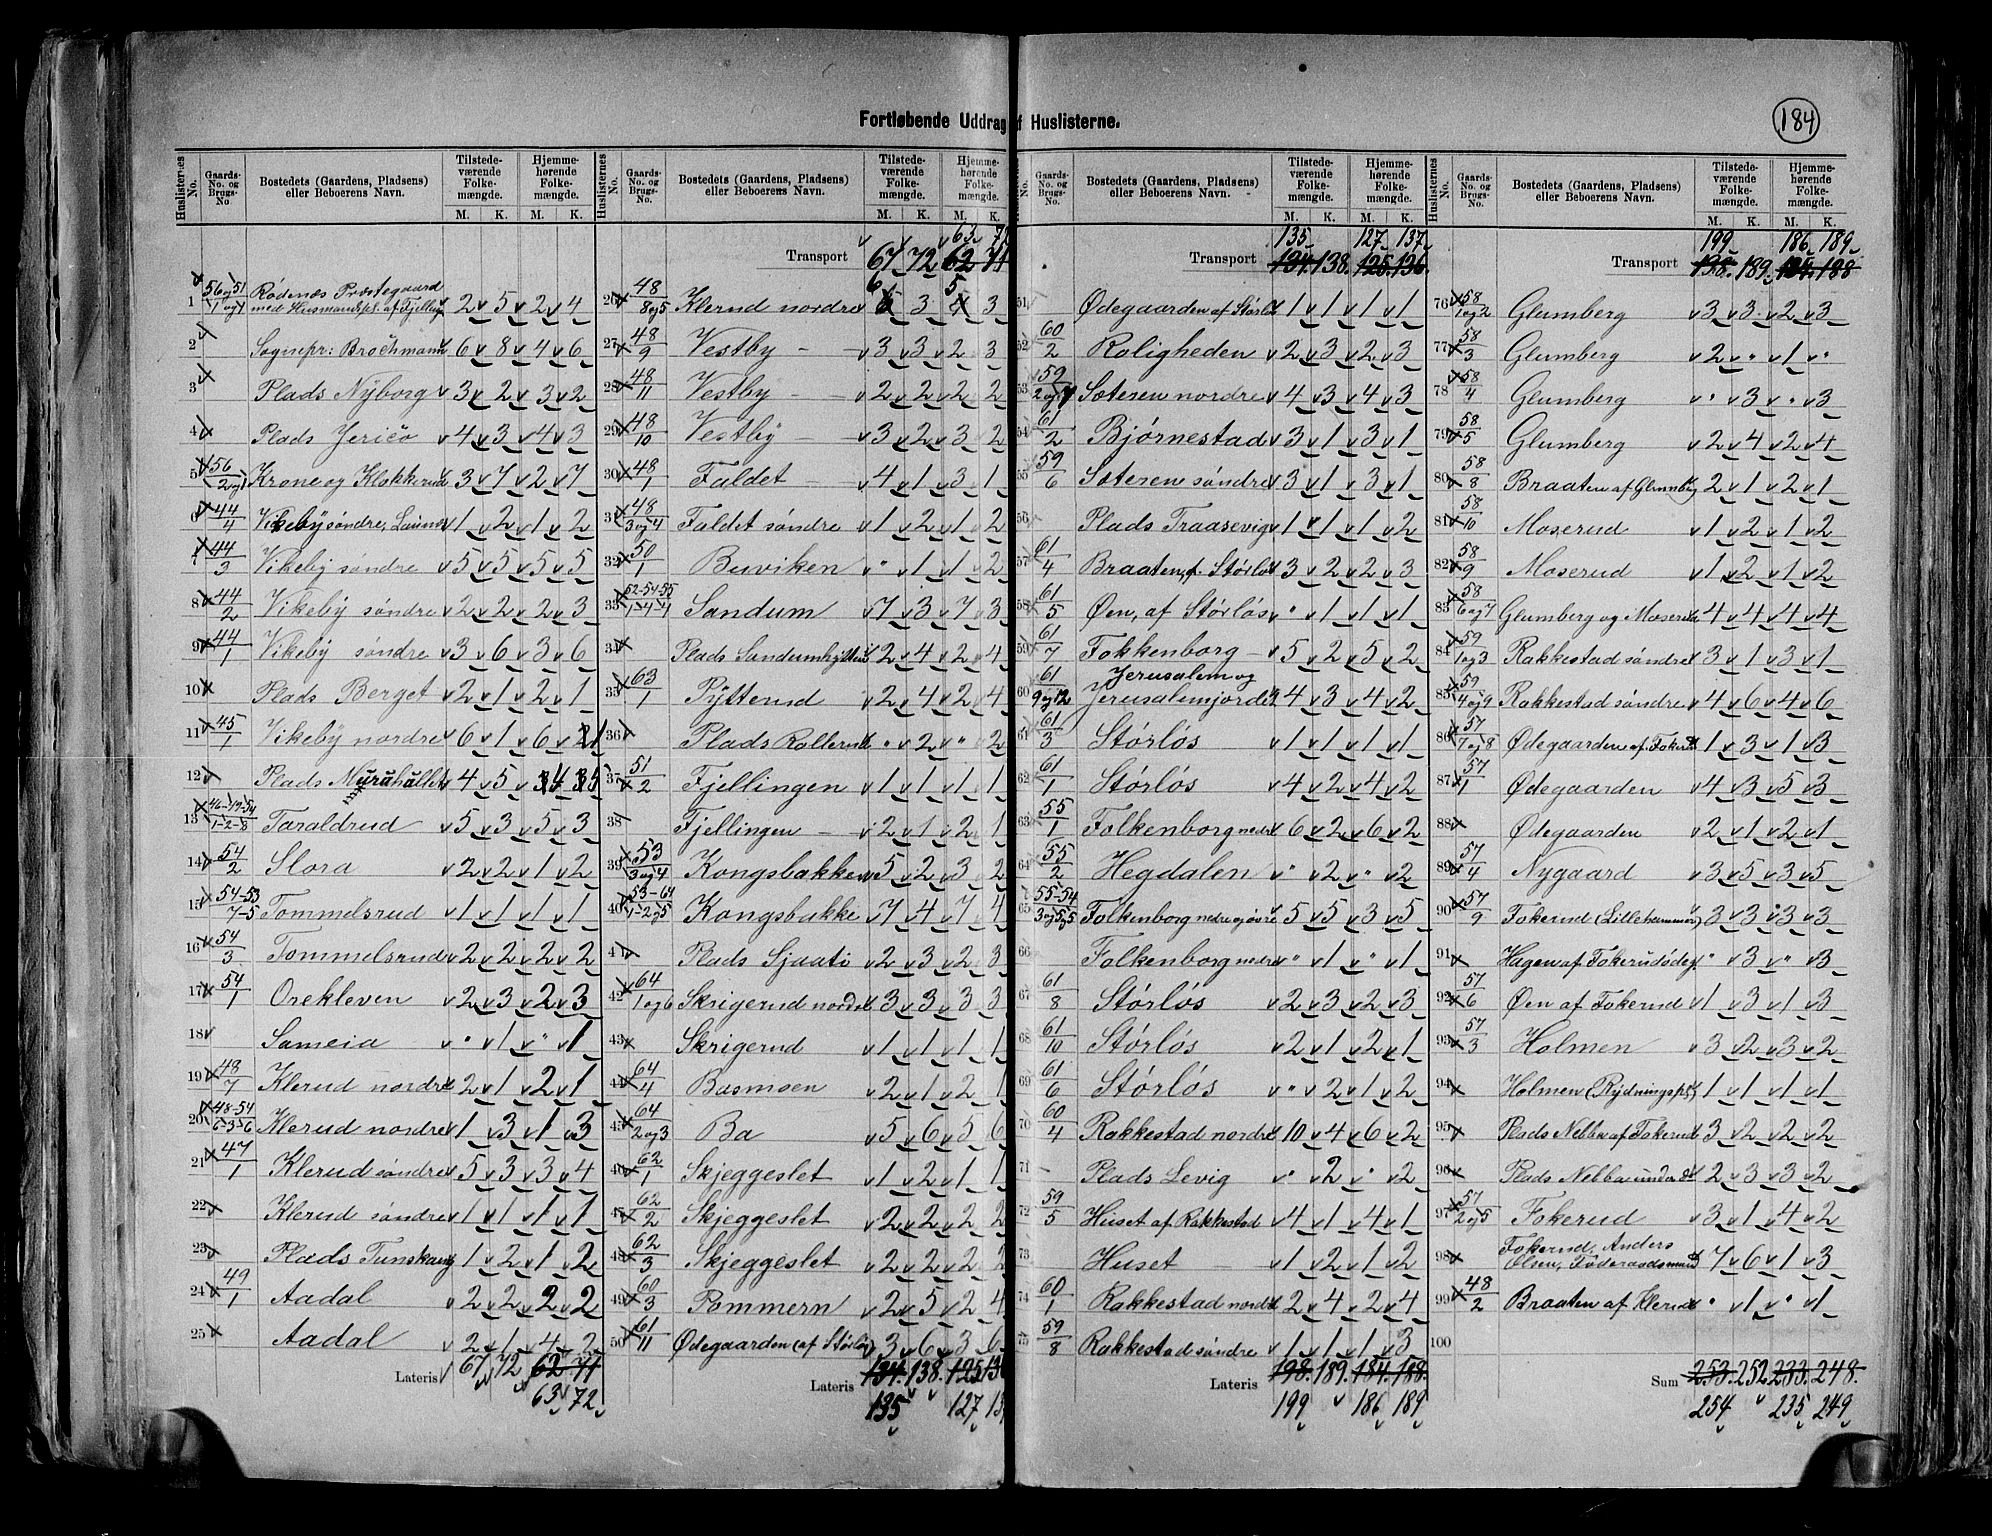 184
Fortløbende Uddrag af Huslisterne.
Huslisternes No. Gaards-No. og Brugs-No. Bostedets (Gaardens, Pladsens) eller Beboerens Navn. Tilstedeværende Folkemængde. M. K. Hjemmehørende Folkemængde. M. K.
1 56og51 / 1og1 Rødenæs Præstegaard med Husmandspl. af Fjelling 2 5 2 4
2 Sognepr: Brochmann 6 8 4 6
3 Plads Nyborg 3 2 3 2
4 Plads Jerico 4 3 4 3
5 56 / 2og1 Krone og Klokkerud 3 7 2 7
6 44/4 Vikeby søndre, 1 2 1 2
7 44/3 Vikeby søndre 5 5 5 5
8 44/2 Vikeby søndre 2 2 2 3
9 44/1 Vikeby søndre 3 6 3 6
10 Plads Berget 2 1 2 1
11 45/1 Vikeby nordre 6 1 6 1
12 Plads 4 5 4 5
13 46-49-54 / 1-2-8 Taraldrud 5 3 5 3
14 54/2 Slora 2 2 1 2
15 54-53 / 7-5 Tommelsrud 1 1 1 1
16 54/3 Tommelsrud 2 2 2 2
17 54/1 Orekleven 2 3 2 3
18 Sameia " 1 " 1
19 48/7 Klerud nordre 2 1 2 1
20 48-54 / 6-3-6 Klerud nordre 1 3 1 3
21 47/1 Klerud søndre 5 3 3 4
22 Klerud søndre 1 1 1 1
23 Plads Tunskaug 1 2 1 2
24 49/1 Aadal 2 2 2 2
25 Aadal 2 1 4 2
Lateris 67 72 62 71
63 72
Huslisternes No. Gaards-No. og Brugs-No. Bostedets (Gaardens, Pladsens) eller Beboerens Navn. Tilstedeværende Folkemængde. M. K. Hjemmehørende Folkemængde. M. K.
63
Transport 67 72 62 71
26 48 / 8og5 Klerud nordre 6 3 5 3
27 48/9 Vestby 3 3 2 3
28 48/11 Vestby 2 2 2 2
29 48/10 Vestby 3 2 3 2
30 48/1 Faldet 4 1 3 1
31 48 / 3og4 Faldet søndre 1 2 1 2
32 50/1 Buviken " 1 1 2
33 52-54-55 / 1-4-4 Sandum 7 3 7 3
34 Plads Sandumhytten 2 4 2 4
35 63/1 Pytterud 2 4 2 4
36 Plads Rollerud " 2 " 2
37 51/2 Fjellingen 1 1 1 1
38 Fjellingen 2 1 2 1
39 53 / 3og4 Kongsbakken 5 2 3 2
40 53-64 / 1-2og5 Kongsbakke 7 4 7 4
41 Plads Sjaati 2 3 2 3
42 64 / 1og6 Skrigerud nordre 3 3 3 3
43 Skrigerud 1 1 1 1
44 64/4 Basmoen 2 1 2 1
45 64 / 2og3 Ba 5 6 5 6
46 62/1 Skjeggeslet 1 2 1 1
47 62/2 Skjeggeslet 2 2 2 2
48 62/3 Skjeggeslet 2 2 2 2
49 60/3 Pommern 2 5 2 4
50 61/11 Ødegaarden (af Størløs) 3 6 3 6
Lateris 134. 138. 125
135 127
Gaards-No. og Brugs-No. Bostedets (Gaardens, Pladsens) eller Beboerens Navn. Tilstedeværende Folkemængde. M. K. Hjemmehørende Folkemængde. M. K.
135 127 137
Transport 134. 138. 125. 136.
51 Ødegaarden af Størløs 1 1 1 1
52 60/2 Roligheden 2 3 2 3
53 59 / 2og7 Soteren nordre 4 3 4 3
54 61/2 Bjørnestad 3 1 3 1
55 59/6 Soteren søndre 3 1 3 1
56 Plads Traasevig 1 1 1 2
57 61/4 Braaten, af Størløs 3 2 2 3
58 61/5 Øen, af Størløs " 1 1 1
59 61/7 Fokkenborg 5 2 5 2
60 61 / 9og12 Jerusalem og Jerusalemjordet 4 3 4 2
61 61/3 Størløs 1 1 1 1
62 61/1 Størløs 4 2 4 2
63 55/1 Folkenborg nedre 6 2 6 2
64 55/2 Hegdalen " 2 " 2
65 55-54 / 3og5og5 Folkenborg nedre og øvre 5 5 3 5
66 Folkenborg nedre " 1 " 1
67 61/8 Størløs 2 3 2 3
68 61/10 Størløs 2 1 2 1
69 61/6 Størløs " 2 1 2
70 60/4 Rakkestad nordre 10 4 6 2
71 Plads Levig " 2 " 2
72 59/5 Huset af Rakkestad 4 1 4 1
73 Huset 1 2 1 2
74 60/1 Rakkestad nordre 2 4 2 4
75 59/8 Rakkestad søndre 1 1 1 3
Lateris 198. 189. 184. 188.
199 186 189
Huslisternes No. Gaards-No. og Brugs-No. Bostedets (Gaardens, Pladsens) eller Beboerens Navn. Tilstedeværende Folkemængde. M. K. Hjemmehørende Folkemængde. M. K.
199 186 189
Transport 198. 189. 184. 188
76 58 / 1og2 Glumberg 3 3 2 3
77 58/3 Glumberg 2 " 1 "
78 58/4 Glumberg " 3 " 3
79 58/5 Glumberg 2 4 2 4
80 58/8 Braaten af Glumberg 2 1 2 1
81 58/10 Moserud 1 2 1 2
82 58/9 Moserud 1 2 1 2
83 58 / 6og7 Glumberg og Moserud 4 4 4 4
84 59 / 1og3 Rakkestad søndre 3 1 3 1
85 59 / 4og9 Rakkestad søndre 4 6 4 6
86 57 / 7og8 Ødegaarden af Fokerud 1 3 1 3
87 57/1 Ødegaarden 4 3 5 3
88 Ødegaarden 2 1 2 1
89 57/4 Nygaard 3 5 3 5
90 57/9 Fokerud (Lillehammer) 3 3 3 3
91 Hagen af Fokerudødeg. " 3 " 3
92 57/6 Øen af Fokerud 1 3 1 3
93 57/3 Holmen 3 2 3 2
94 Holmen (Rydningspl.) 1 1 1 1
95 Plads Nebba af Fokerud 3 2 2 2
96 Plads Nebba under do 2 3 3 2
97 57 / 2og5 Fokerud 3 1 4 2
98 Fokerud, Anders Olsen, Føderaadsmand 7 6 1 3
99 48/2 Braaten af Klerud " 1 " 1
100
Sum 253. 252 233. 248.
254 235 249